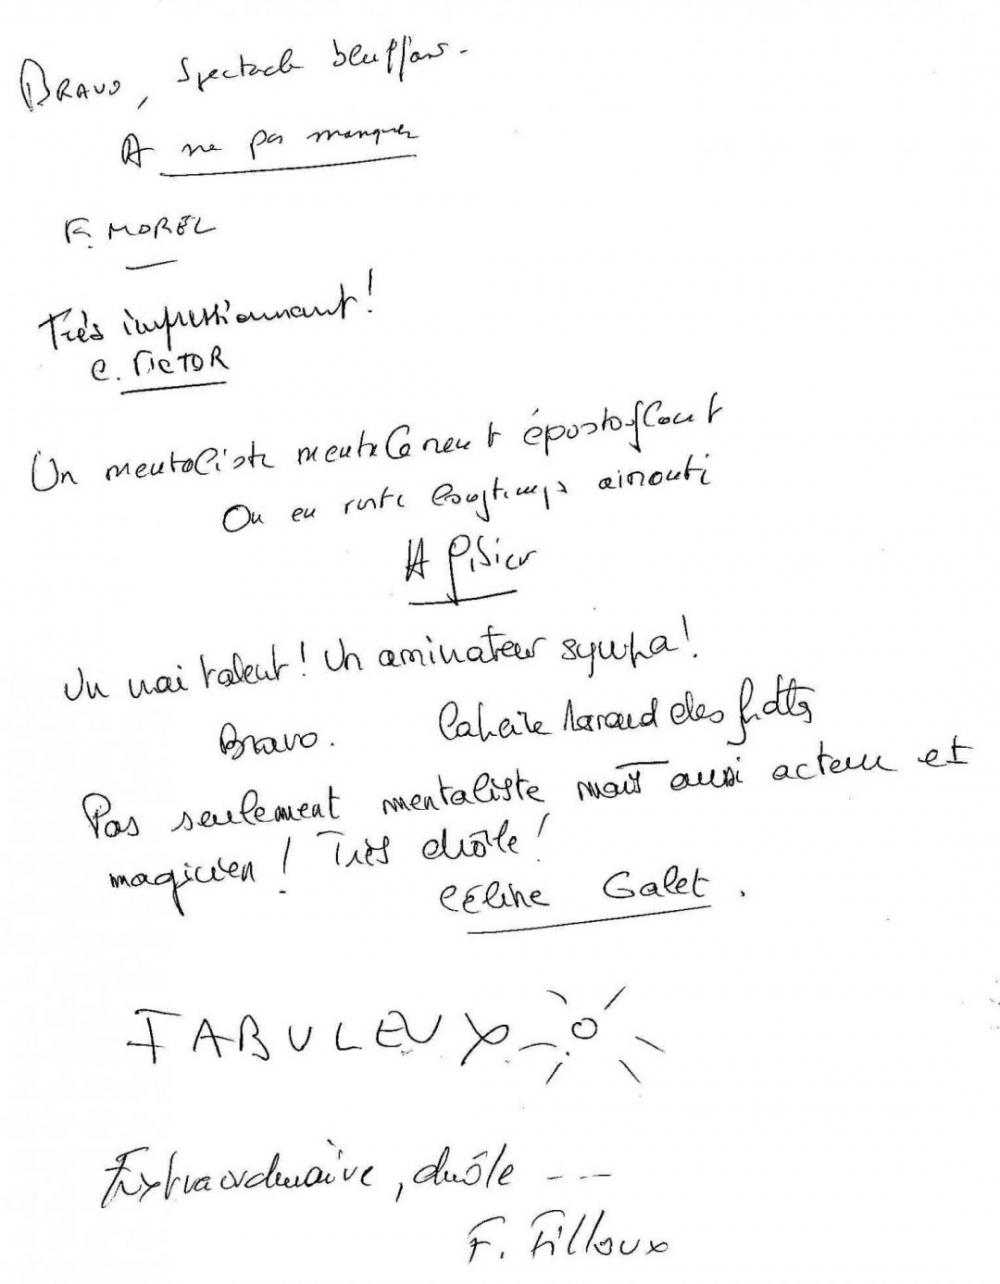 BRAVO, Spectacle bluffant.
A ne pas manquer
F. MOREL
Très impressionnant !
C. VICTOR
Un mentaliste mentalement époustouflant
On en reste longtemps
A Pisier
Un vrai talent ! Un animateur sympa !
Bravo. des
Pas seulement mentaliste mais aussi acteur et
magicien ! Très drôle !
Céline Galet.
FABULEUX
Extraordinaire, drôle ---
F. Filloux